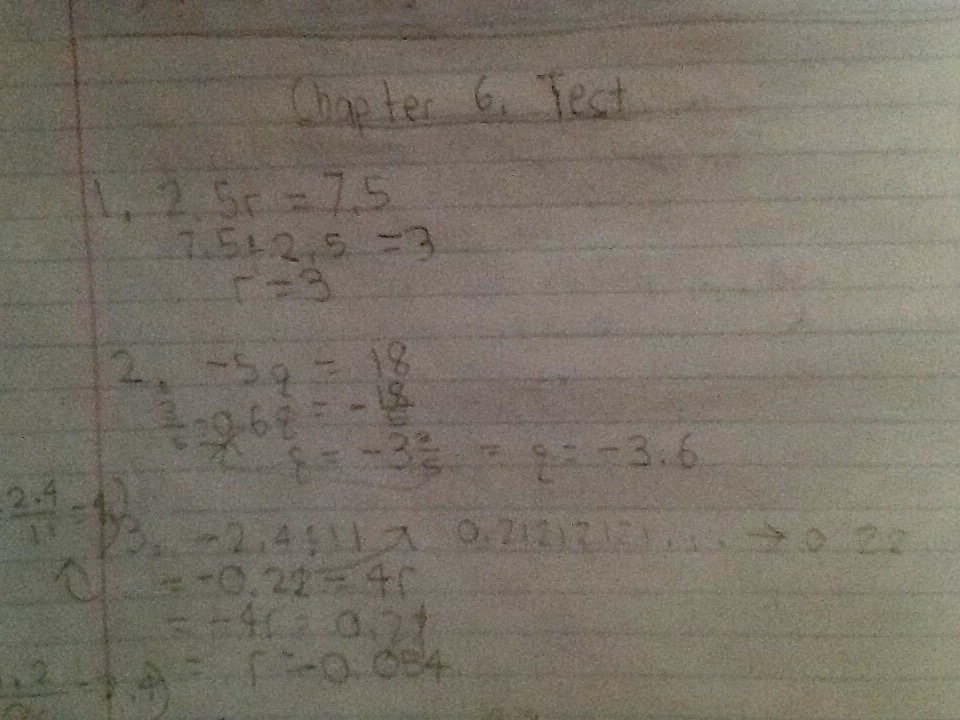 Chapter 6. Test
1. 2.5r = 7.5
7.5÷2.5 =3
r=3
2. -5q = 18
q = -18/5
3/5=0.6
q = -3 3/5 = q=-3.6
2.4/11
3. -2.4÷11 0.21212121... → 0.22
= -0.22 = 4r
= -4r = 0.
= r=-0.054